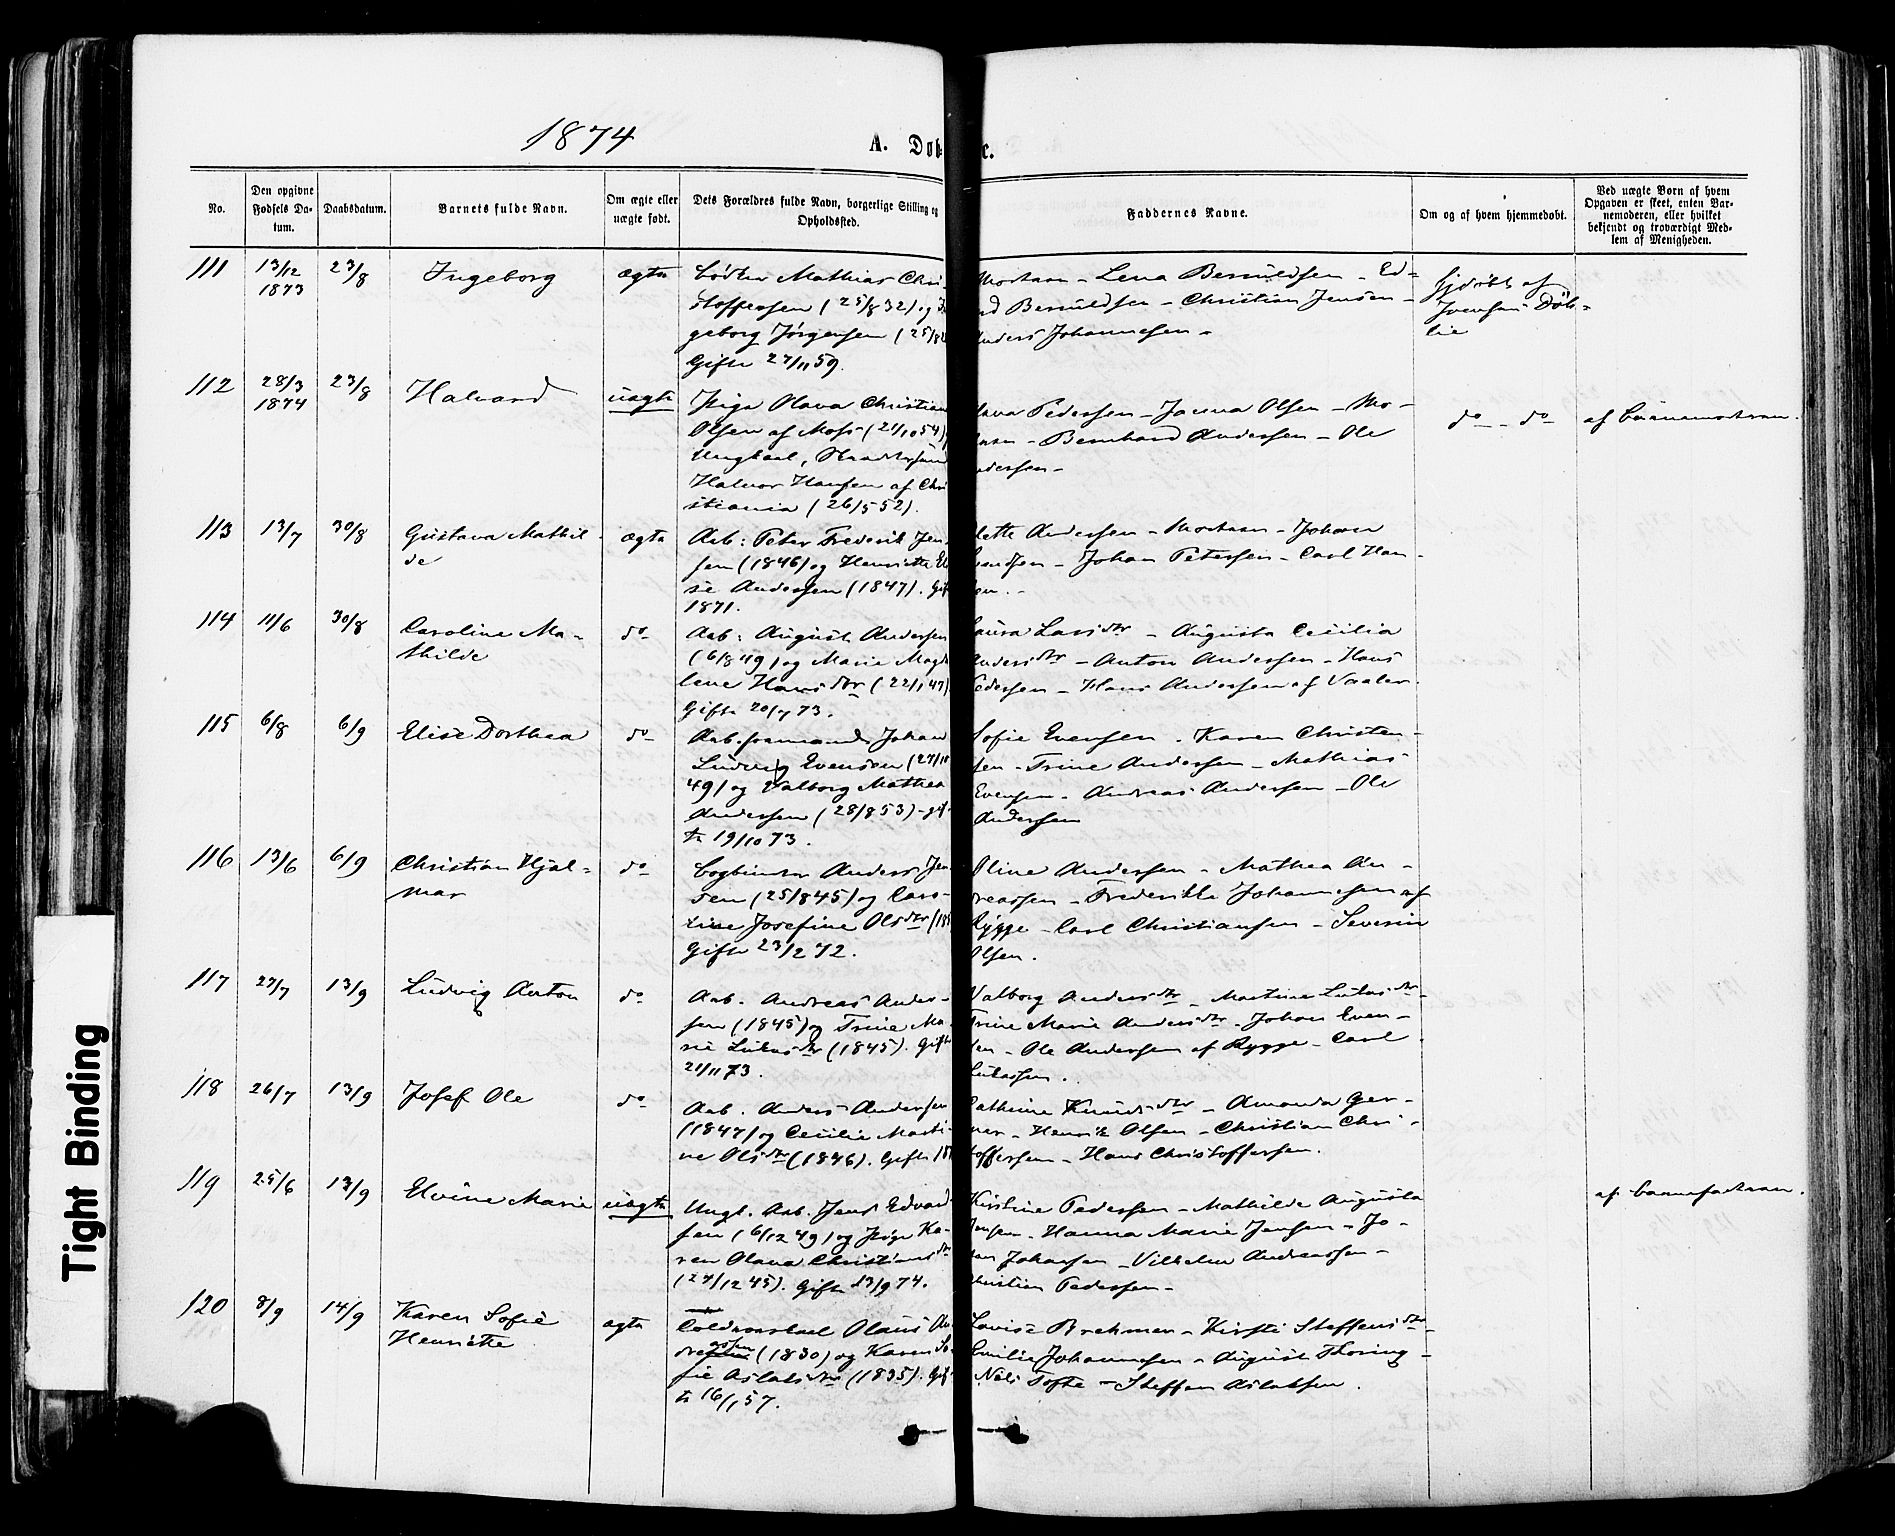 1874
A. Døb
e.
No.
Den opgivne Fødsels Da-
tum.
Daabsdatum.
Barnets fulde Navn.
Om ægte eller
uægte født.
Dets Forældres fulde Navn, borgerlige Stilling og
Opholdssted.
Faddernes Navne.
Om og af hvem hjemmedøbt.
Ved uægte Børn af hvem
Opgaven er skeet, enten Bar-
nemoderen, eller hvilket
bekjendt og troværdigt Med-
lem af Menigheden.
111 13/12 1873 23/8 Ingeborg ægte
Bødker Mathias Chri-
stoffersen (25/8 32) og
geborg Jørgensen (25/8
Gifte 27/11 59.
Modren - Lena Bernildsen - Ed-
Bernildsen - Christian Jensen -
Anders Johannesen -
hjdøbt af
112 28/3 1874 23/8 Halvard uægte
Pige Olava Christian
Olsen af Moss (21/10 54)
Ungkarl,
Halvor Hansen af Chri
stiania (26/5 52).
Pedersen - Olsen - Mo-
- Bernhard Andersen - Ole
dersen -
do - do
af Barnemodren.
113 13/7 30/8 Gustava Mathil-
de
ægte
Arb: Peter Frederik Jen-
sen (1846) og Henriette El
se Andersen (1847). Gif
1871.
lette Andersen - Modren - Johan
- Johan Petersen - Carl Han-
sen. -
114 11/6 30/8 Caroline Ma-
thilde
do
Arb: August Andersen
(6/8 49) og Marie Magda
lene Hansdtr (22/1 47)
Gifte 20/7 73.
Laura Larsdtr - Augusta Cecilia
Andersdtr - Anton Andersen - Hans
Pedersen - Hans Andersen af Vaaler.
115 6/8 6/9 Elise Dorthea do
Arb. formand Johan
Ludvig Evensen (27/10
49) og Valborg Mathea
Andersen (28/8 53) - gif-
te 19/10 73.
Sofie Evensen. Karen Christen-
sen - Trine Andersen - Mathias
Evensen - Andreas Andersen - Ole
Andersen
116 13/6 6/9 Christian Hjal-
mar
do
Bogbinder Anders Jen
sen (25/8 45) og Caro-
line Josefine Olsdtr (18
Gifte 23/2 72.
Oline Andersen - Mathea An-
dreassen - Frederikke Johannesen af
Rygge - Carl Christiansen - Severin
Olsen.
117 27/7 13/9 Ludvig Anton do
Arb. Andreas Ander-
sen (1845) og Trine Ma-
rie Lukasdtr (1845). Gifte
21/11 73.
Valborg Andersdtr - Martine Lukasdtr -
Trine Marie Andersdtr. Johan Even-
sen - Ole Andersen af Rygge - Carl
Lukassen.
118 26/7 13/9 Josef Ole do
Arb. Anders Andersen
(1847) og Cecilie Marti-
ne Olsdtr (1846). Gifte 18
Cathrine Knudsdtr - Amanda Ger-
ner - Henrik Olsen - Christian Chri-
stoffersen - Hans Christoffersen.
119 25/6 13/9 Elvine Marie uægte
Ungk. Arb. Jens Edvard
sen (6/12 49) og Pige Ka-
ren Olava Christiansdtr
(27/12 45). Gifte 13/9 74.
Kirstine Pedersen - Mathilde Augusta
Jensen - Hanna Marie Jensen - Jo-
han Johansen - Vilhelm Andreassen -
Christian Pedersen -
af Barnefadren.
120 8/9 14/9 Karen Sofie
Henriette
ægte
Olaus An
dreasen (1830) og Karen So-
fie Aslaksdtr (1835). Gif-
te 16/1 57.
Lovise Brehmer - Kirsti Steffensdtr -
Emilie Johannesen - August Thoring -
Nils Tofte - Steffen Aslaksen.
Tight Binding